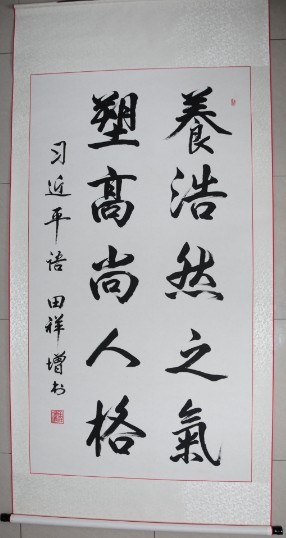 養浩然之氣
塑高尚人格
习近平语 田祥增书